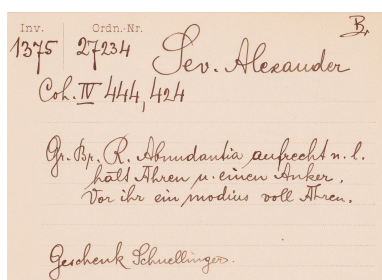 Inv. Ordn.-Nr. B.
1375 27234 Sev. Alexander
Coh. IV 444, 424
Gr. Br. R. Abundantia aufrecht n. l.
hält Ähren u. einen Anker.
Vor ihr ein modius voll Ähren.
Geschenk Schnellinger.